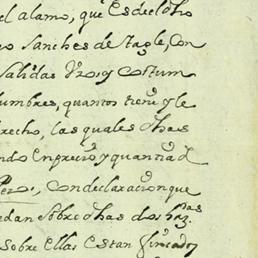 el alamo, que es del dho
Sanches de Tagle, con
salidas Vsos y costum
umbres, quantos tiene y le
recho, las quales dhas
ndo En precio y quantia d
Pezos, con declaracion que
edan Sobre dhas dos haz.das
Sobre Ellas Estan fincados